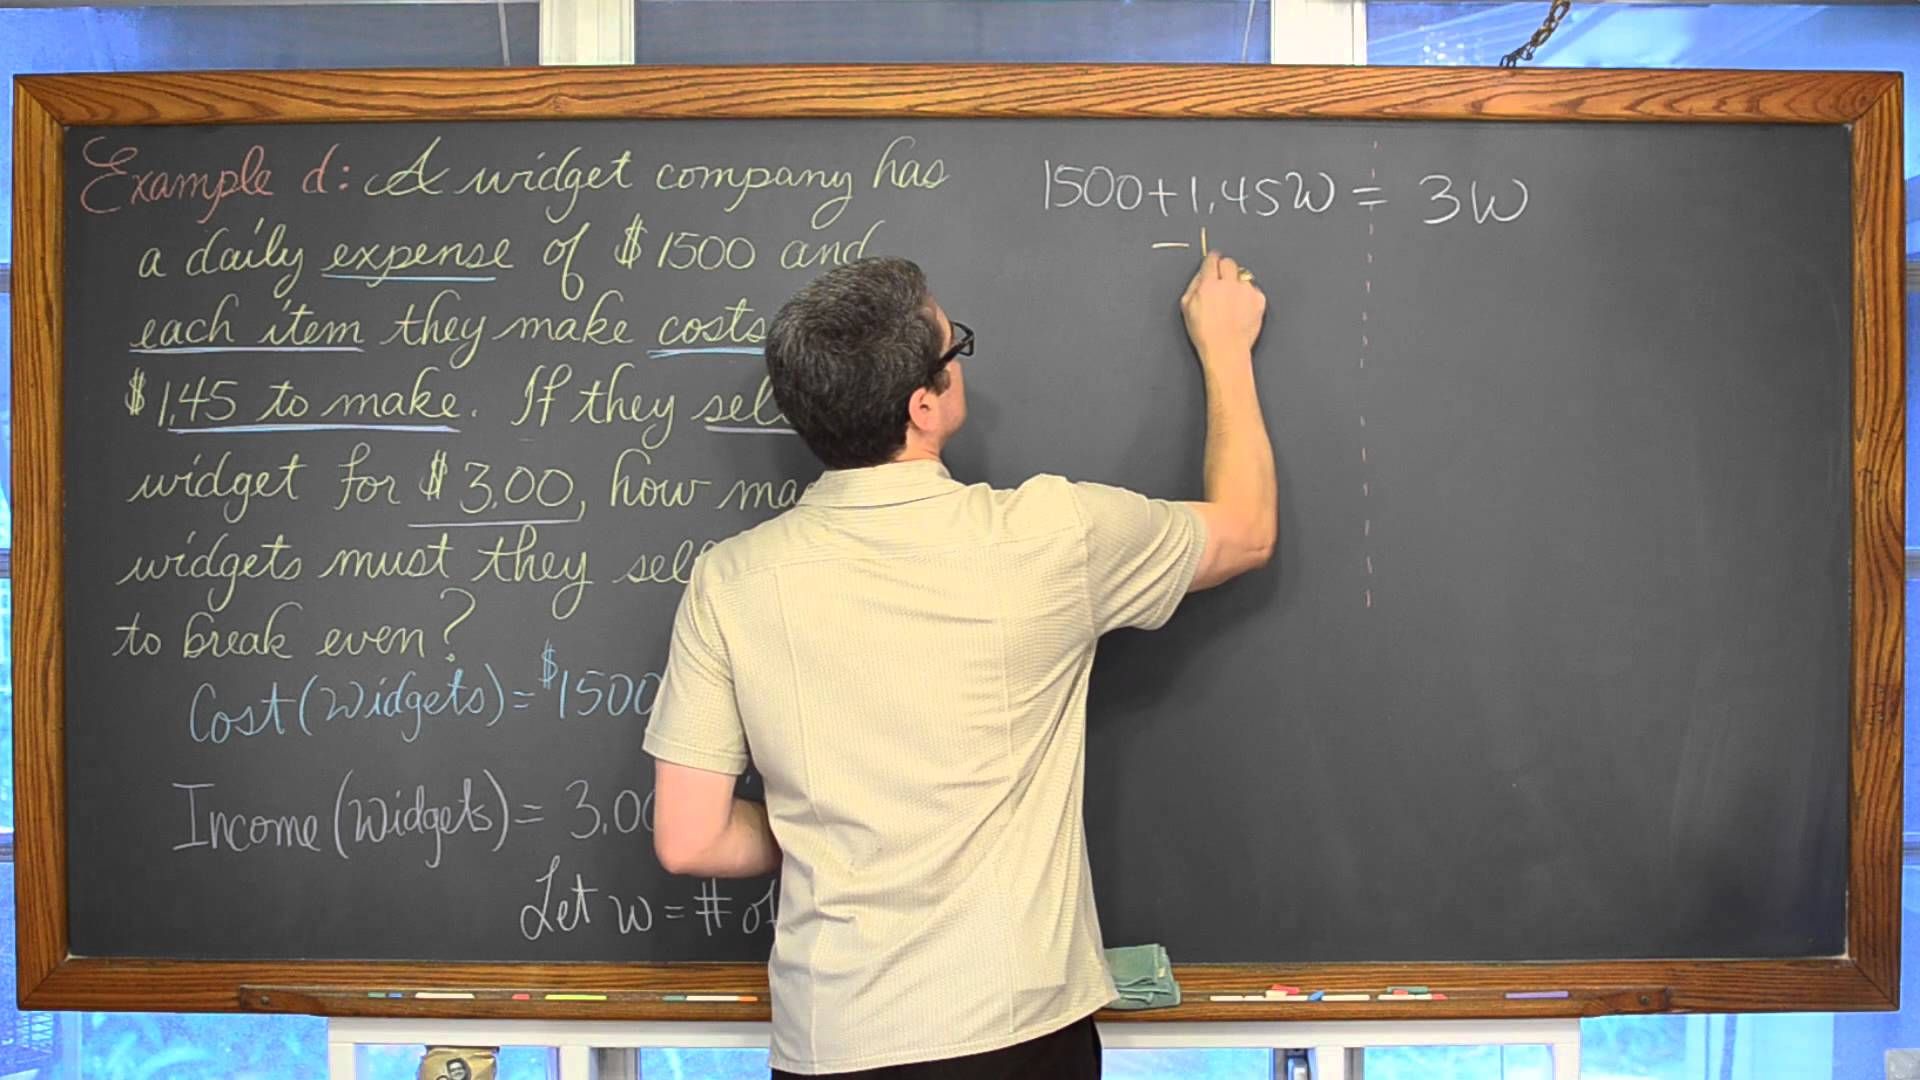 Example d: A widget company has
a daily expense of $1500 and
each item they make costs
$1.45 to make. If they
widget for $3.00, how
widgets must they
to break even?
Cost(Widgets)=$1500
Income(Widgets)=3.00
Let w=# of
1500+1.45W=3W
-1